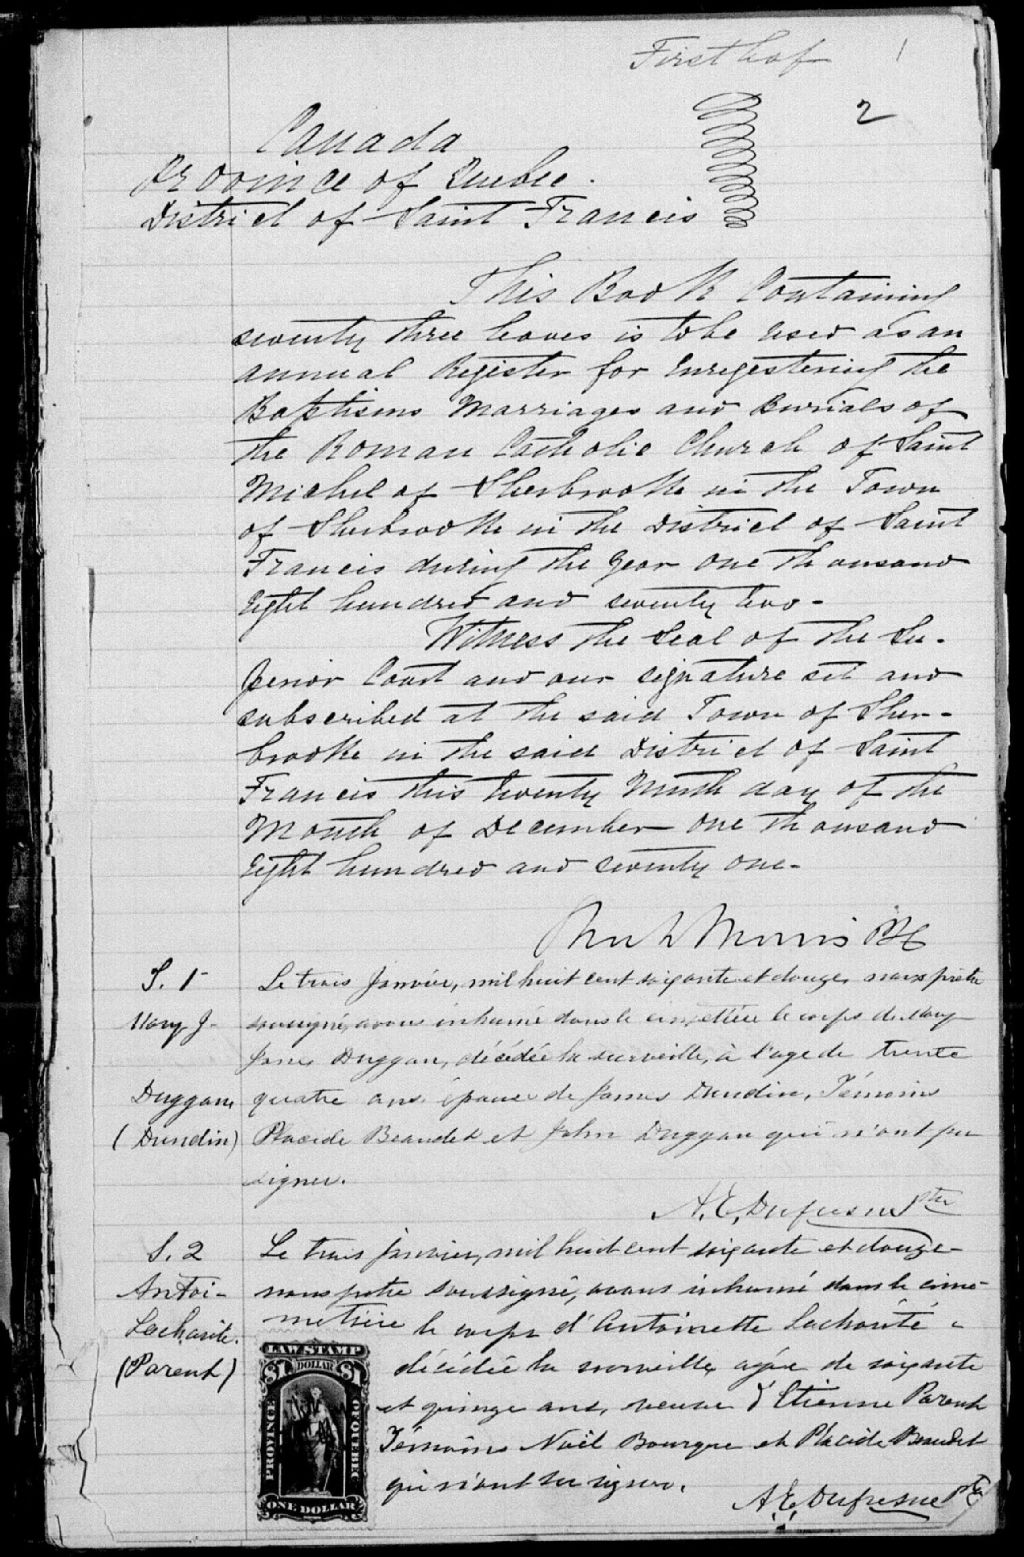 First
1
2
Canada
Province of Quebec.
District of Saint Francis
This Book Containing
seventy three leaves is to be used as an
annual Register for Enregestering the
Baptisms Marriages and Burials of
the Roman Catholic Church of Saint
Michel of Sherbrooke in the Town
of Sherbrooke in the District of Saint
Francis during the year one thousand
Eight hundred and seventy two-
Witness the Seal of the Su-
perior Court and our signature set and
subscribed at the said Town of Sher-
brooke in the said District of Saint
Francis this twenty Ninth day of the
Month of December one thousand
Eight hundred and seventy one-
Morris
S. 1 Le trois Janvier, mil huit cent soixante et douze, nous prêtre
Mary J. soussigné, avons inhumé dans le cimetière le corps de Mary
Jane Duggan, décédée la surveille, à l'age de trente
Duggan, quatre ans épouse de James Dundin, Témoins
(Dundin) Placide Beaudet et John Duggan qui n'ont pu
signer.
A. E. Dufresne Ptre
S. 2 Le trois Janvier, mil huit cent soixante et douze
Antoi- nous prêtre soussigné, avons inhumé dans le cime-
Lacharité. metière le corps d'Antoinette Lacharité
(Parent) décédée la surveille, agée de soixante
et quinze ans, veuve d'Etienne Parent
Témoins Noël Bourque et Placide Beaudet
qui n'ont su signer.
A. E. Dufresne Ptre
LAW STAMP
$1 DOLLAR $1
PROVINCE OF QUEBEC
ONE DOLLAR